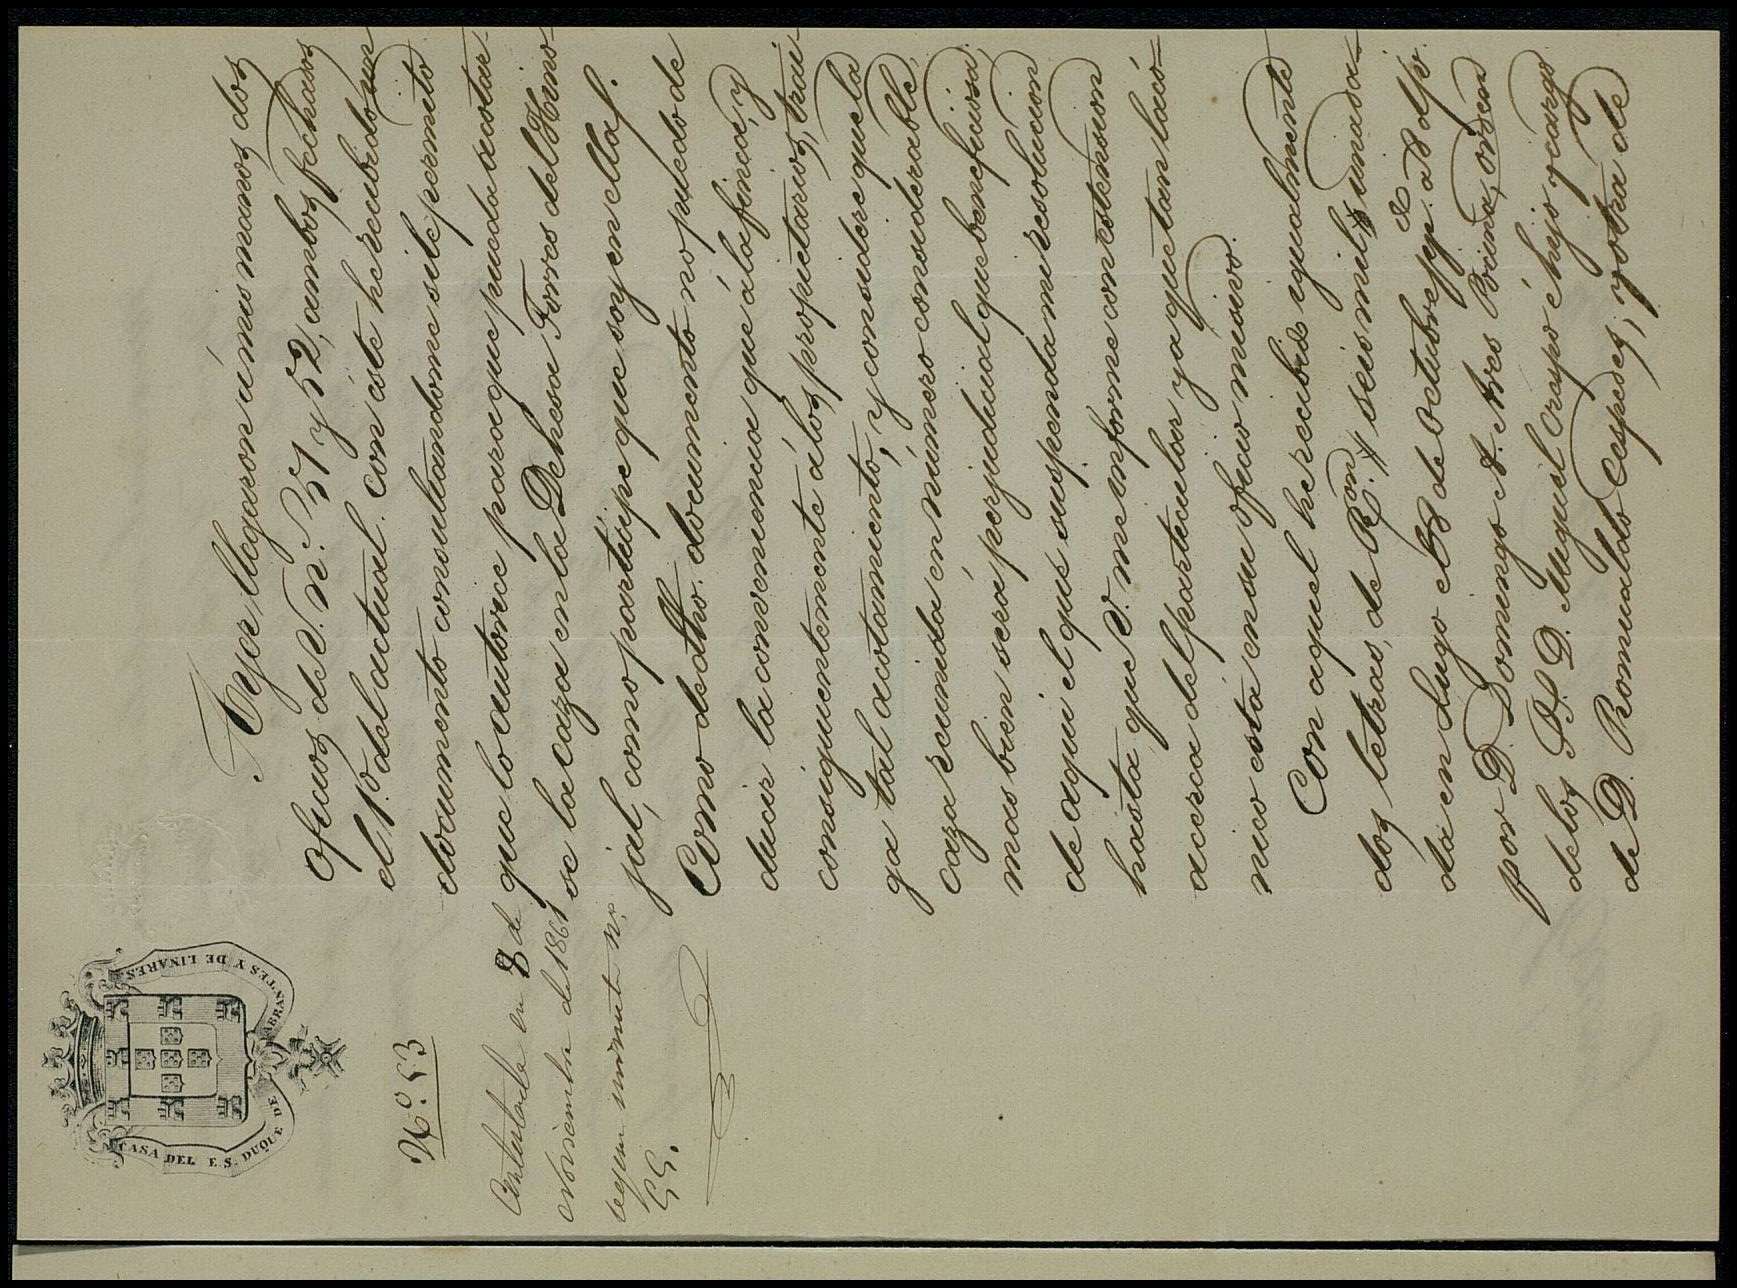 CASA DEL E. S. DUQUE DE ABRANTES Y DE LINARES
N.º 53
Contestada en 8 de
Noviembre de 1861
segun minuta n.º
55.
Ayer llegaron á mis manos dos
oficios de V. n.º 51 y 52, ambos fechados
el 1º del actual. Con este he recibido un
documento consultandome si le permito
que lo autorice para que pueda acotar-
se la caza en la Dehesa Torres del Hino-
jal, como partícipe que soy en ella.
Como de dho. documento no puedo de
ducir la conveniencia que á la finca, y
consiguientemente á los propietarios, trai-
ga tal acotamiento, y considere que la
caza reunida en número considerable,
mas bien será perjudicial que beneficiosa
de aqui el que suspenda mi resolucion
hasta que V. me informe con estension
acerca del particular, ya que tan lacó-
nico está en su oficio misivo.
Con aquel he recibido igualmente
dos letras, de R.on seis mil una da-
da en Lugo el 28 de octubre pp. á 8 d/v.
por D. Domingo A. Ares Boina, orden
de los S. S. D. Miguel Crespo é hijo y cargo
de D. Romualdo Cespedes; y otra de